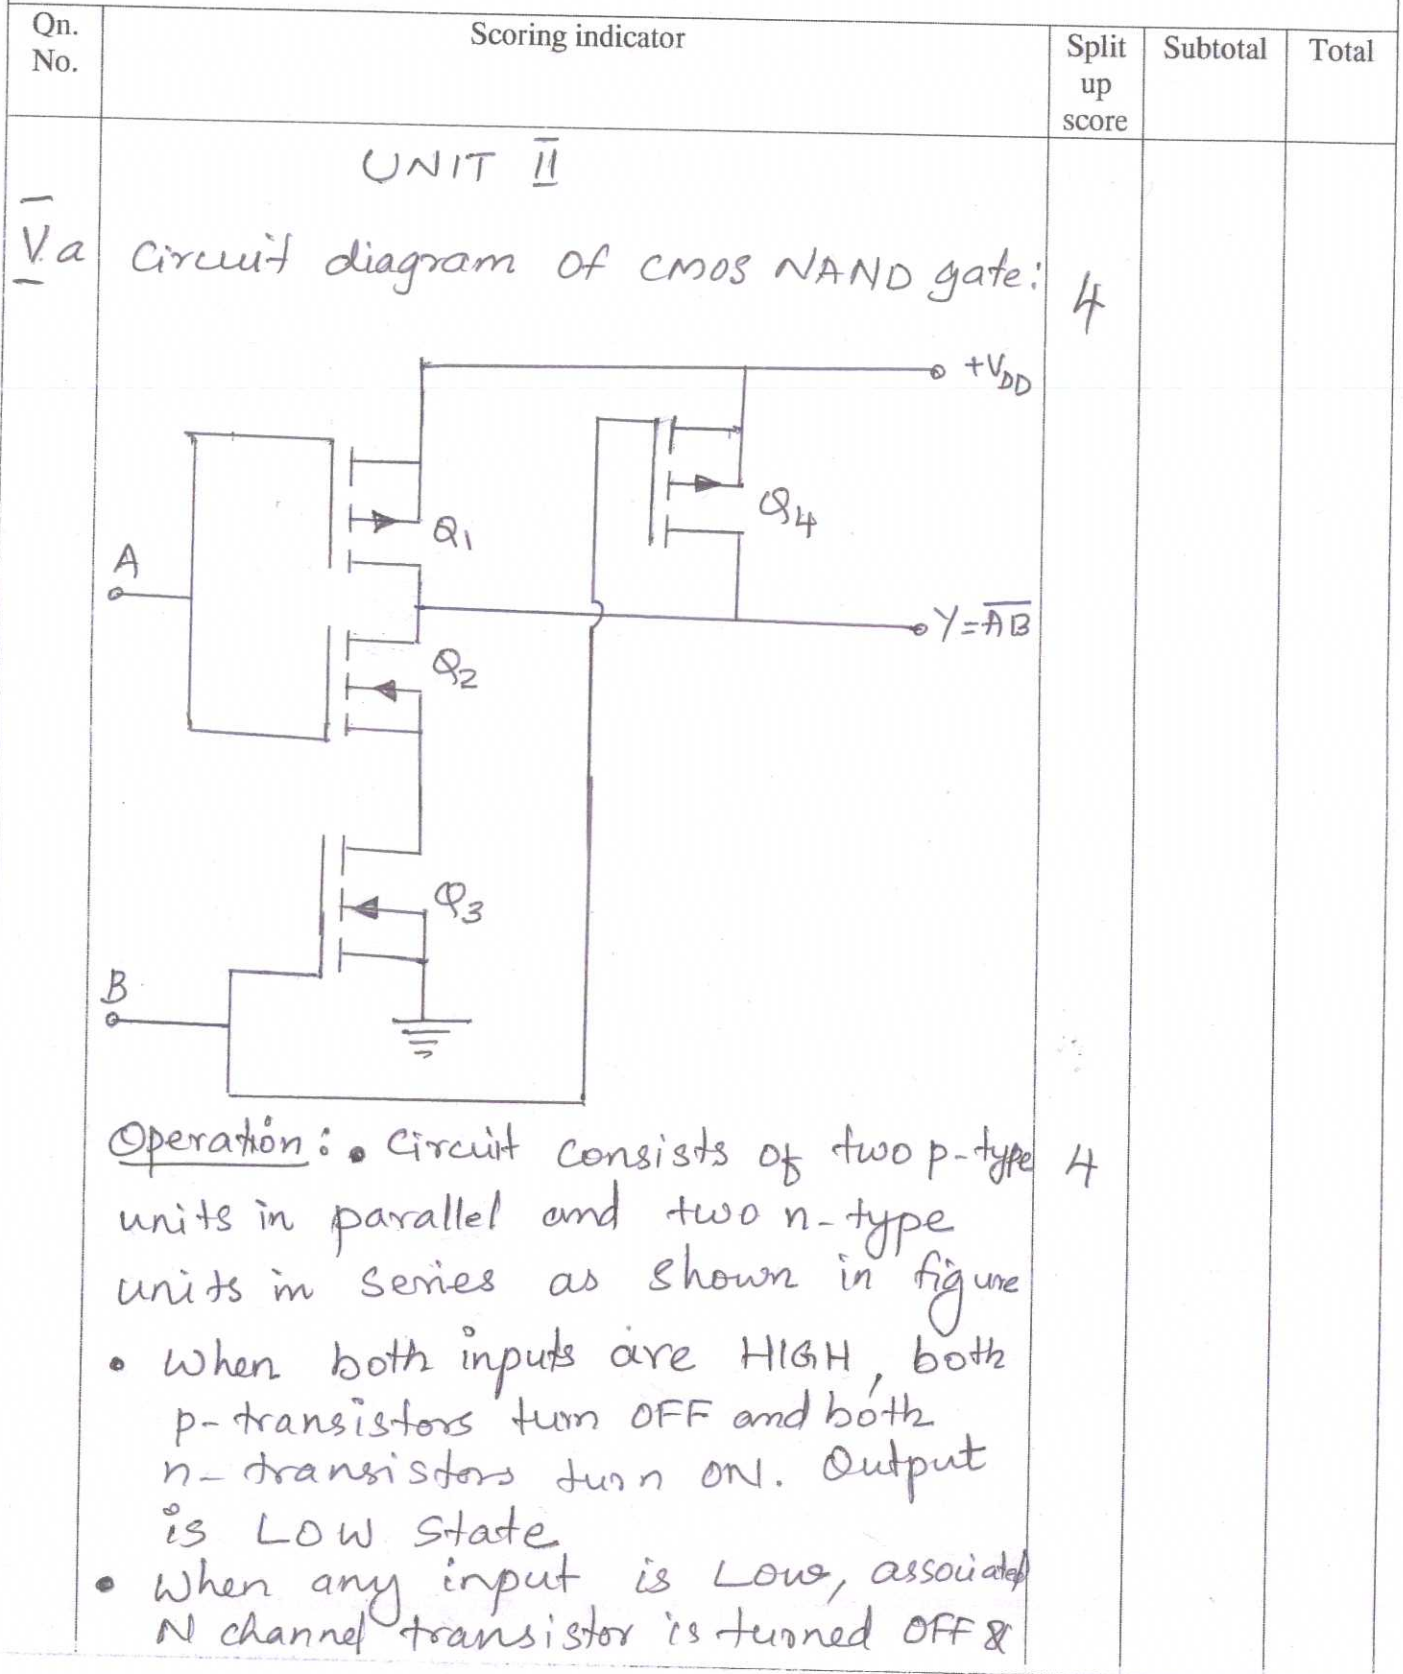 Qn. No.
Scoring indicator
Split up score
Subtotal
Total
UNIT II
V.a Circuit diagram of CMOS NAND gate:
4
+VDD
Q1
Q4
A
Y=A̅B̅
Q2
Q3
B
Operation: • Circuit consists of two p-type
4
units in parallel and two n-type
units in series as shown in figure
• When both inputs are HIGH, both
p-transistors turn OFF and both
n-transistors turn ON. Output
is LOW State
• When any input is Low, associated
N channel transistor is turned OFF &